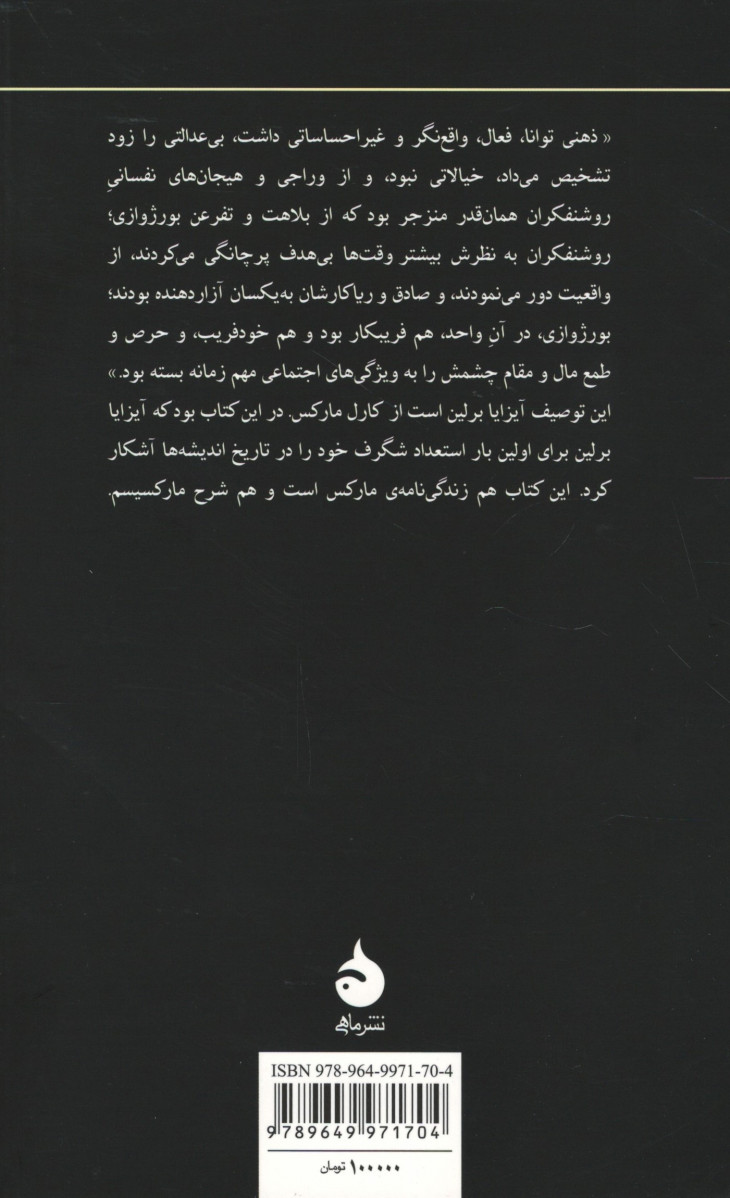 « ذهنی توانا، فعال، واقع‌نگر و غیراحساساتی داشت، بی‌عدالتی را زود
تشخیص می‌داد، خیالاتی نبود، و از وراجی و هیجان‌های نفسانیِ
روشنفکران همان‌قدر منزجر بود که از بلاهت و تفرعن بورژوازی؛
روشنفکران به نظرش بیشتر وقت‌ها بی‌هدف پرچانگی می‌کردند، از
واقعیت دور می‌نمودند، و صادق و ریاکارشان به‌یکسان آزاردهنده بودند؛
بورژوازی، در آنِ واحد، هم فریبکار بود و هم خودفریب، و حرص و
طمع مال و مقام چشمش را به ویژگی‌های اجتماعی مهم زمانه بسته بود.»
این توصیف آیزایا برلین است از کارل مارکس. در این کتاب بود که آیزایا
برلین برای اولین بار استعداد شگرف خود را در تاریخ اندیشه‌ها آشکار
کرد. این کتاب هم زندگی‌نامه‌ی مارکس است و هم شرح مارکسیسم.
نشرماهی
ISBN 978-964-9971-70-4
9 789649 971704
۱۰۰۰۰۰ تومان